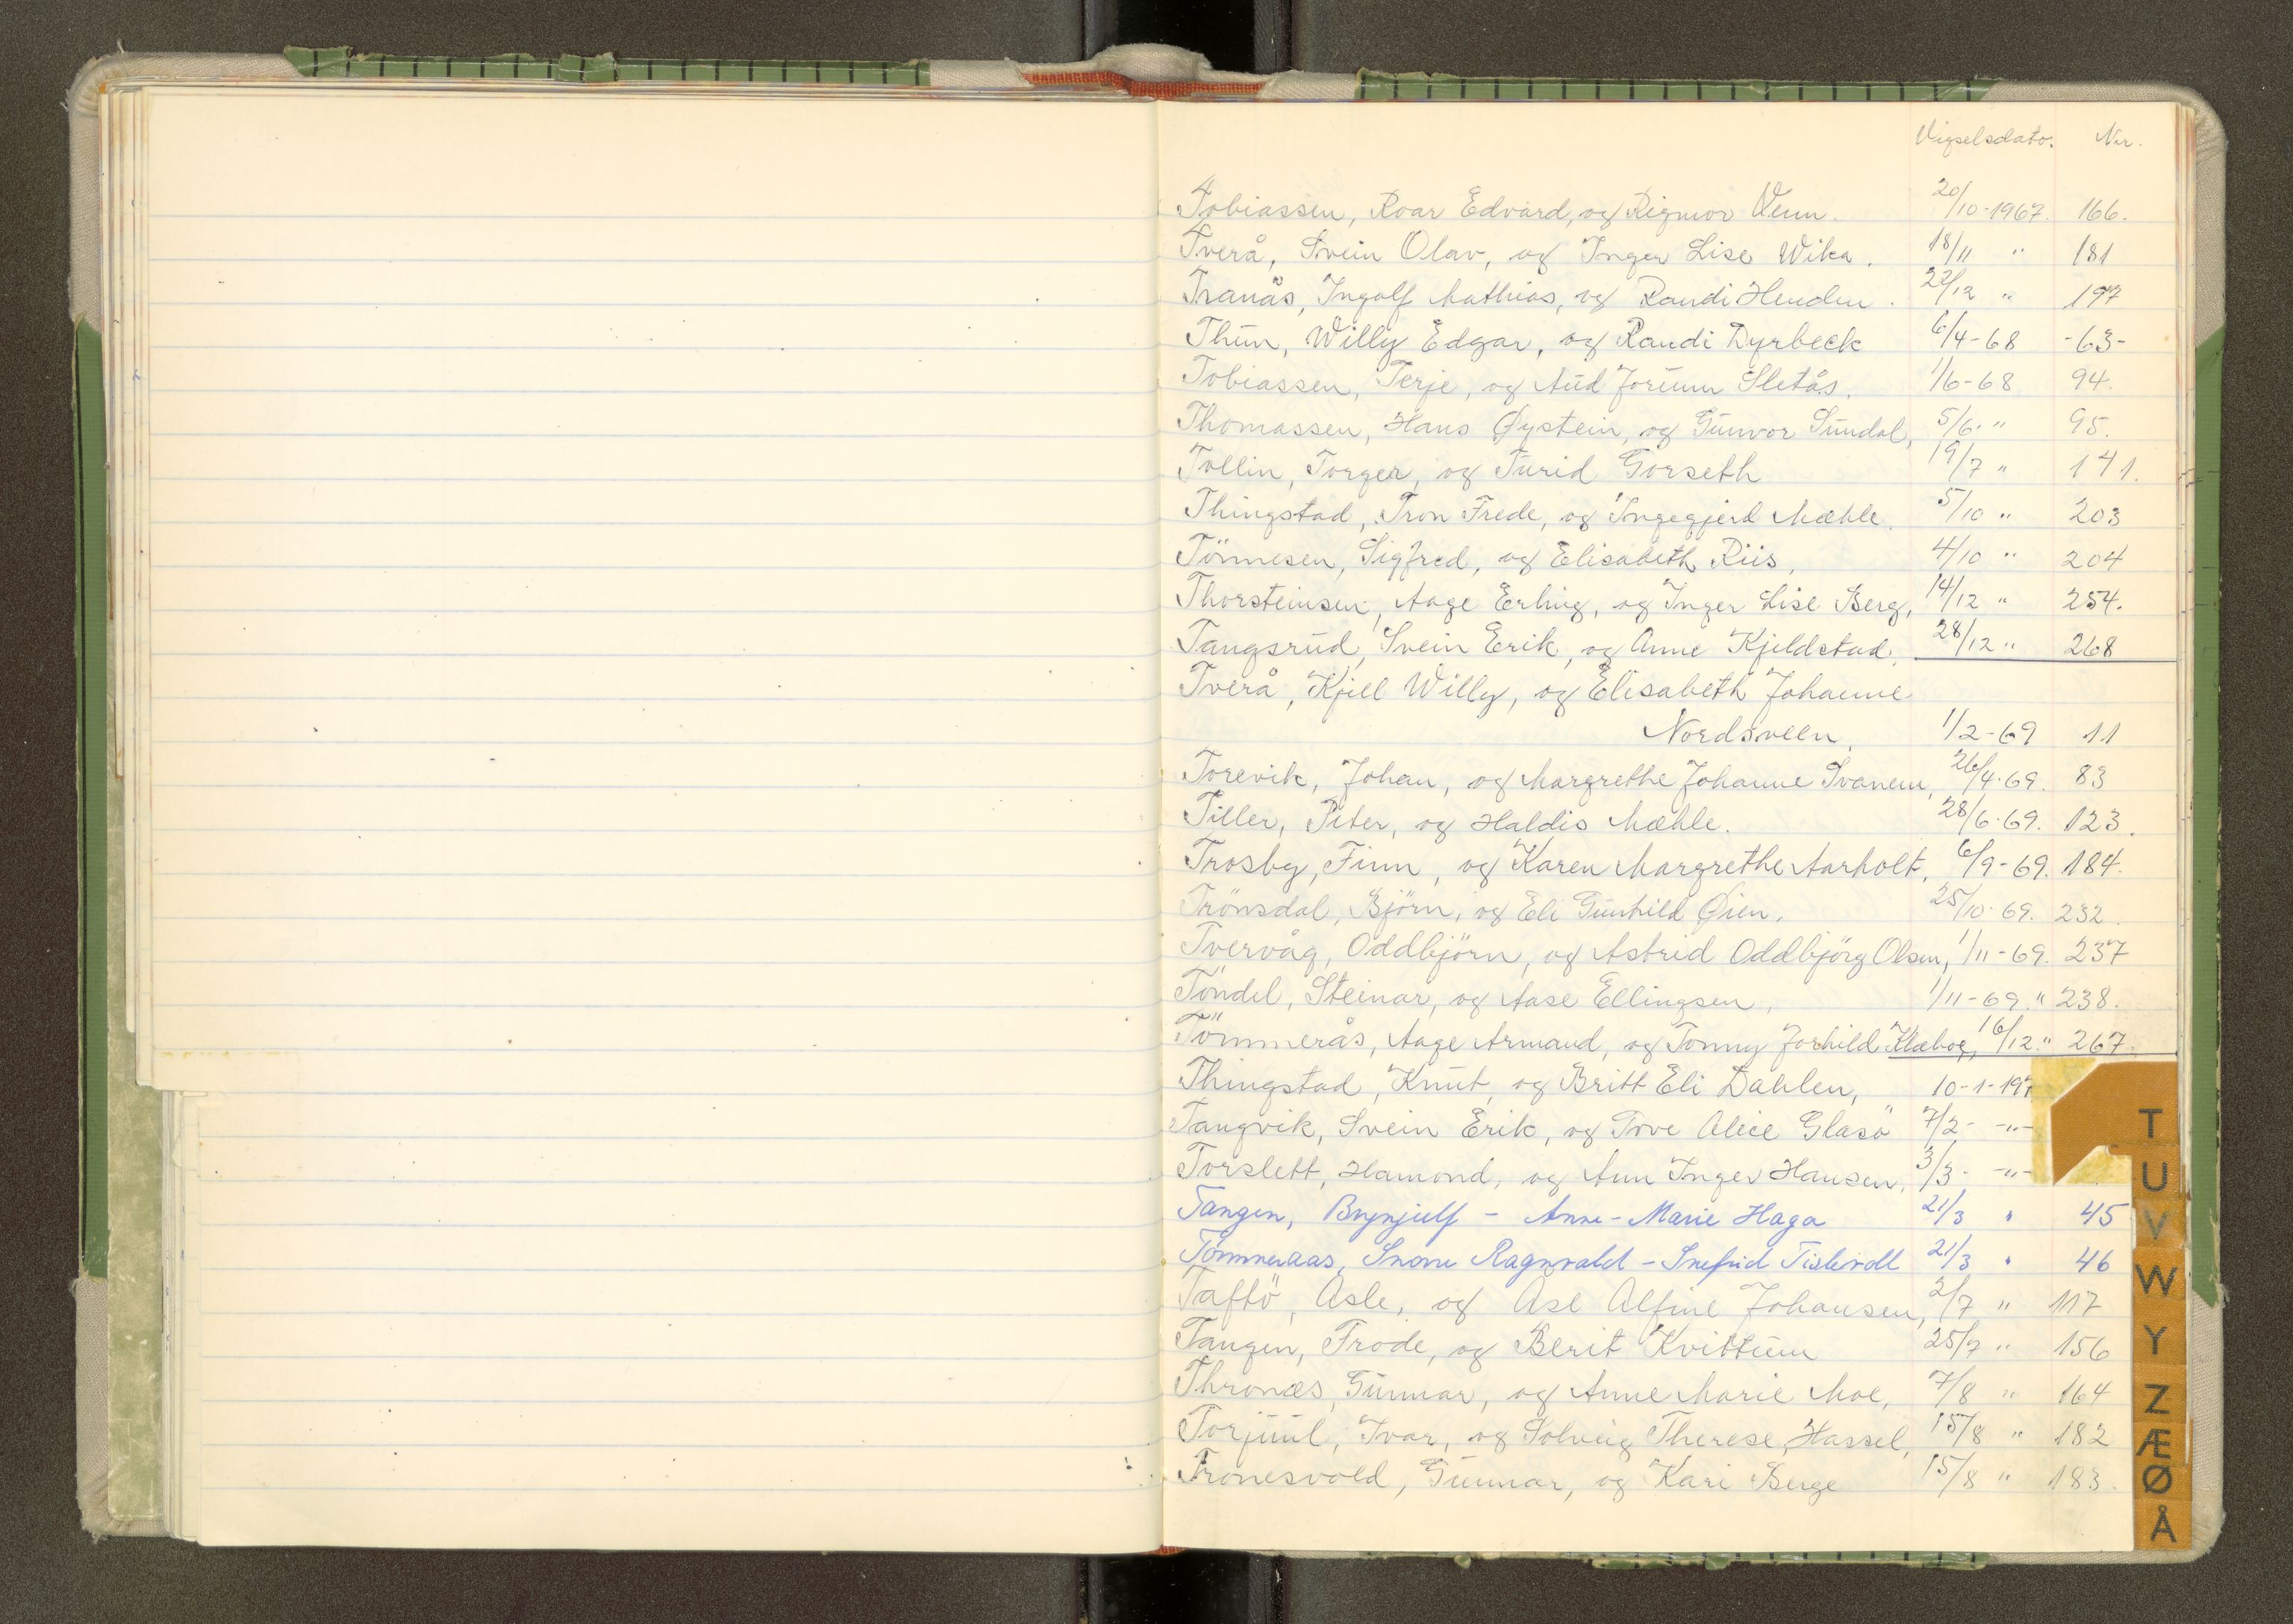 Vigselsdato. Nr.
Tobiassen, Roar Edvard, og Rigmor Venn. 20/10-1967. 166.
Tverå, Svein Olav, og Inger Lise Wika. 18/11 " 181
Tranås, Ingolf Mathias, og Randi Henden. 22/12 " 197
Thun, Willy Edgar, og Randi Dyrbeck 6/4-68 -63-
Tobiassen, Terje, og Aud Jorunn Sletås. 1/6-68 94.
Thomassen, Hans Øystein, og Gunvor Sundal, 5/6. " 95.
Tollin, Torger, og Turid Gorseth 19/7 " 141.
Thingstad, Tron Frede, og Ingegjerd Mæhle. 5/10 " 203
Tönnesen, Sigfred, og Elisabeth Riis, 4/10 " 204
Thorsteinsen, Aage Erling, og Inger Lise Berg, 14/12 " 254.
Tangsrud, Svein Erik, og Anne Kjeldstad, 28/12 " 268
Tverå, Kjell Willy, og Elisabeth Johanne
Nordsveen, 1/2-69 11
Torevik, Johan, og Margrethe Johanne Svanem, 26/4-69. 83
Tiller, Peter, og Haldis Mæhle. 28/6-69. 123.
Trosby, Finn, og Karen Margrethe Aarholt, 6/9-69. 184.
Trönsdal, Björn, og Eli Gunhild Øien, 25/10-69. 232.
Tvervåg, Oddbjörn, og Astrid Oddbjörg Olsen, 1/11-69. 237
Töndel, Steinar, og Aase Ellingsen, 1/11-69. " 238.
Tömmerås, Aage Armand, og Tonny Jorhild Klæboe, 16/12. " 267.
Thingstad, Knut, og Britt Eli Dahlen, 10-1-197
Tangvik, Svein Erik, og Tove Alice Glasö 7/2- -"-
Torslett, Hamond, og Ann Inger Hansen, 3/3- -"-
Tangen, Brynjulf - Anne-Marie Haga 21/3 " 45
Tømmeraas, Snorre Ragnvald - Snefrid Tislevoll 21/3 " 46
Taftö, Asle, og Åse Alfine Johansen, 2/7 " 117
Tangen, Frode, og Berit Kvittum 25/7 " 156
Thronæs, Gunnar, og Anne Marie Moe, 7/8 " 164
Torjuul, Ivar, og Solveig Therese Hassel, 15/8 " 182
Tronesvold, Gunnar, og Kari Berge 15/8 " 183.
T
U
V
W
Y
Z
Æ
Ø
Å